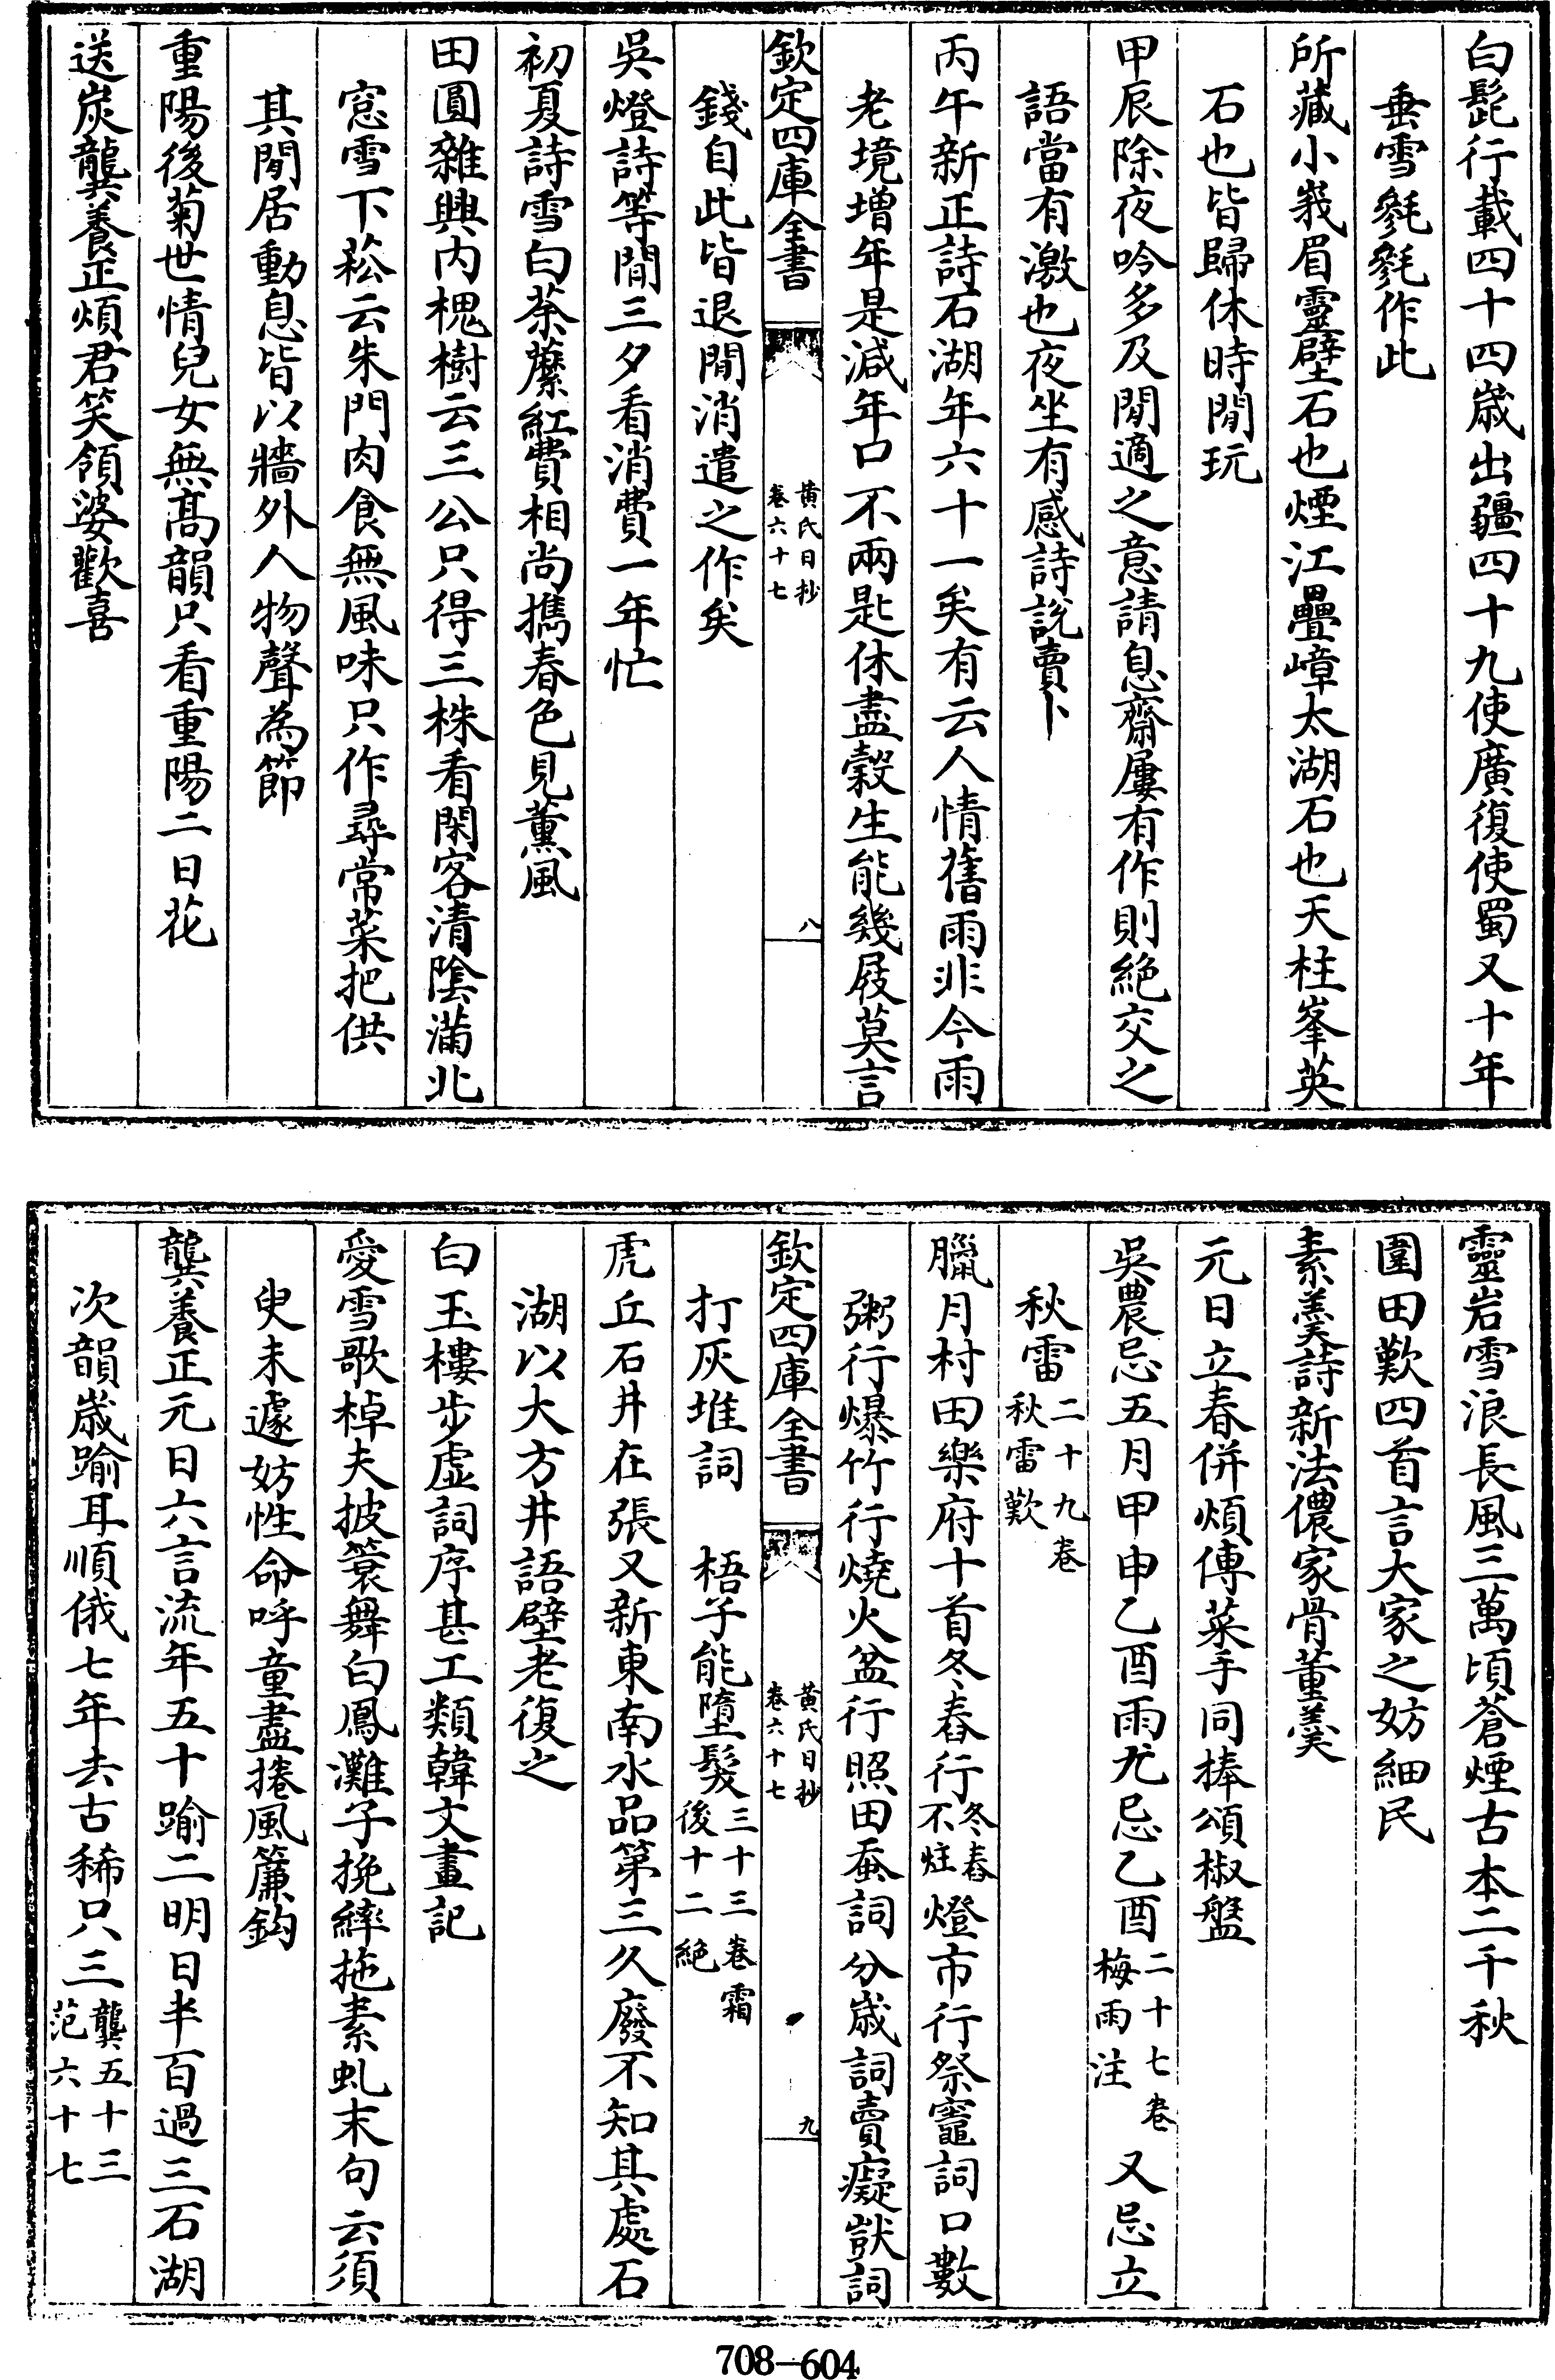 白髭行載四十四歳出疆四十九使廣復使蜀又十年
垂雪毿毿作此
所藏小峩眉靈壁石也煙江疊嶂太湖石也天柱峯英
石也皆歸休時閒玩
甲辰除夜吟多及閒適之意請息齋屢有作則絶交之
語當有激也夜坐有感詩説賣卜
丙午新正詩石湖年六十一矣有云人情舊雨非今雨
老境増年是減年口不兩匙休盡穀生能幾屐莫言
欽定四庫全書
黄氏日抄
卷六十七
八
錢自此皆退閒消遣之作矣
吳燈詩等閒三夕看消費一年忙
初夏詩雪白荼䕷紅費相尚攜春色見薫風
田圓雜興内槐樹云三公只得三株看閑客清隂滿北
窓雪下菘云朱門肉食無風味只作尋常菜把供
其閒居動息皆以牆外人物聲為節
重陽後菊世情兒女無髙韻只看重陽二日花
送炭龔養正煩君笑領婆歡喜
靈岩雪浪長風三萬頃蒼煙古本二千秋
圍田歎四首言大家之妨細民
素羮詩新法儂家骨董羮
元日立春併煩傳菜手同捧頌椒盤
吳農忌五月甲申乙酉雨尤忌乙酉二十七卷梅雨注又忌立
秋雷二十九卷秋雷歎
臘月村田樂府十首冬舂行冬舂不㽻燈市行祭竈詞口數
粥行爆竹行燒火盆行照田蚕詞分歳詞賣癡獃詞
欽定四庫全書
黄氏日抄
卷六十七
九
打灰堆詞　梧子能墮髮三十三卷霜後十二絶
虎丘石井在張又新東南水品第三久廢不知其處石
湖以大方井語壁老復之
白玉樓步虚詞序甚工類韓文畫記
愛雪歌棹夫披簑舞白鳳灘子挽縴拖素虬末句云須
臾未遽妨性命呼童盡捲風簾鈎
龔養正元日六言流年五十踰二明日半百過三石湖
次韻歳踰耳順俄七年去古稀只三龔五十三范六十七
708-604